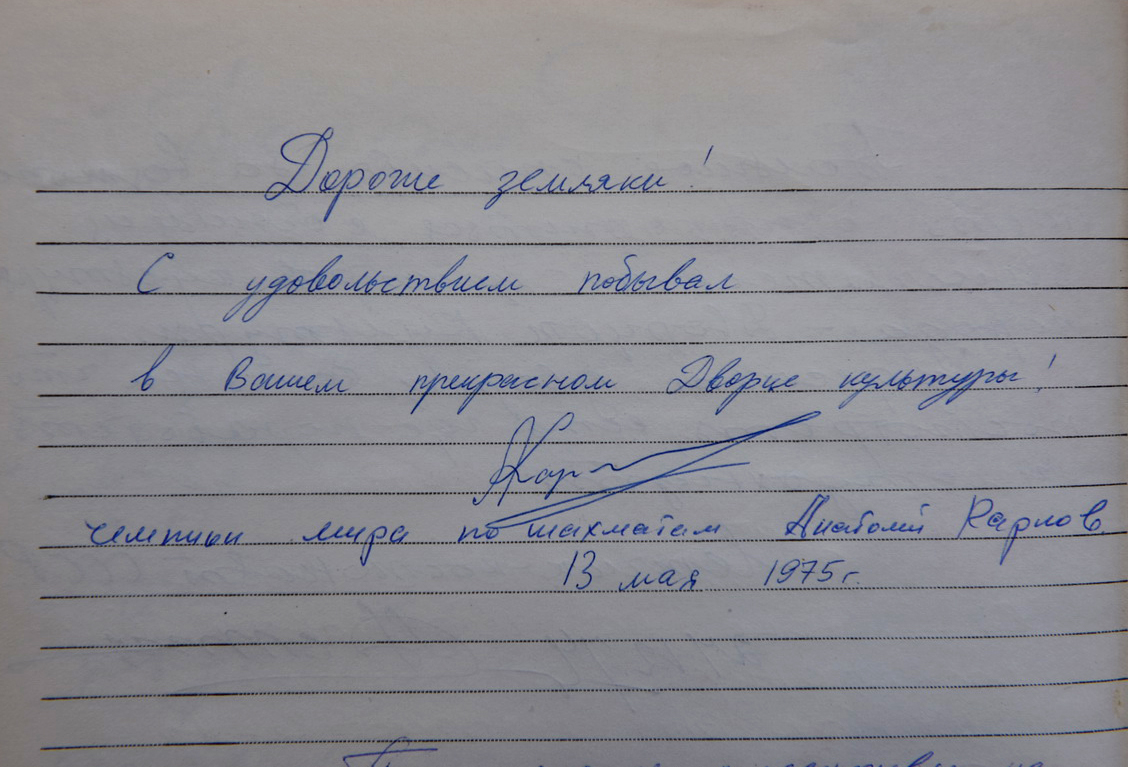 Дорогие земляки!
С удовольствием побывал
в Вашем прекрасном Дворце культуры!
АКар
чемпион мира по шахматам Анатолий Карпов.
13 мая 1975г.